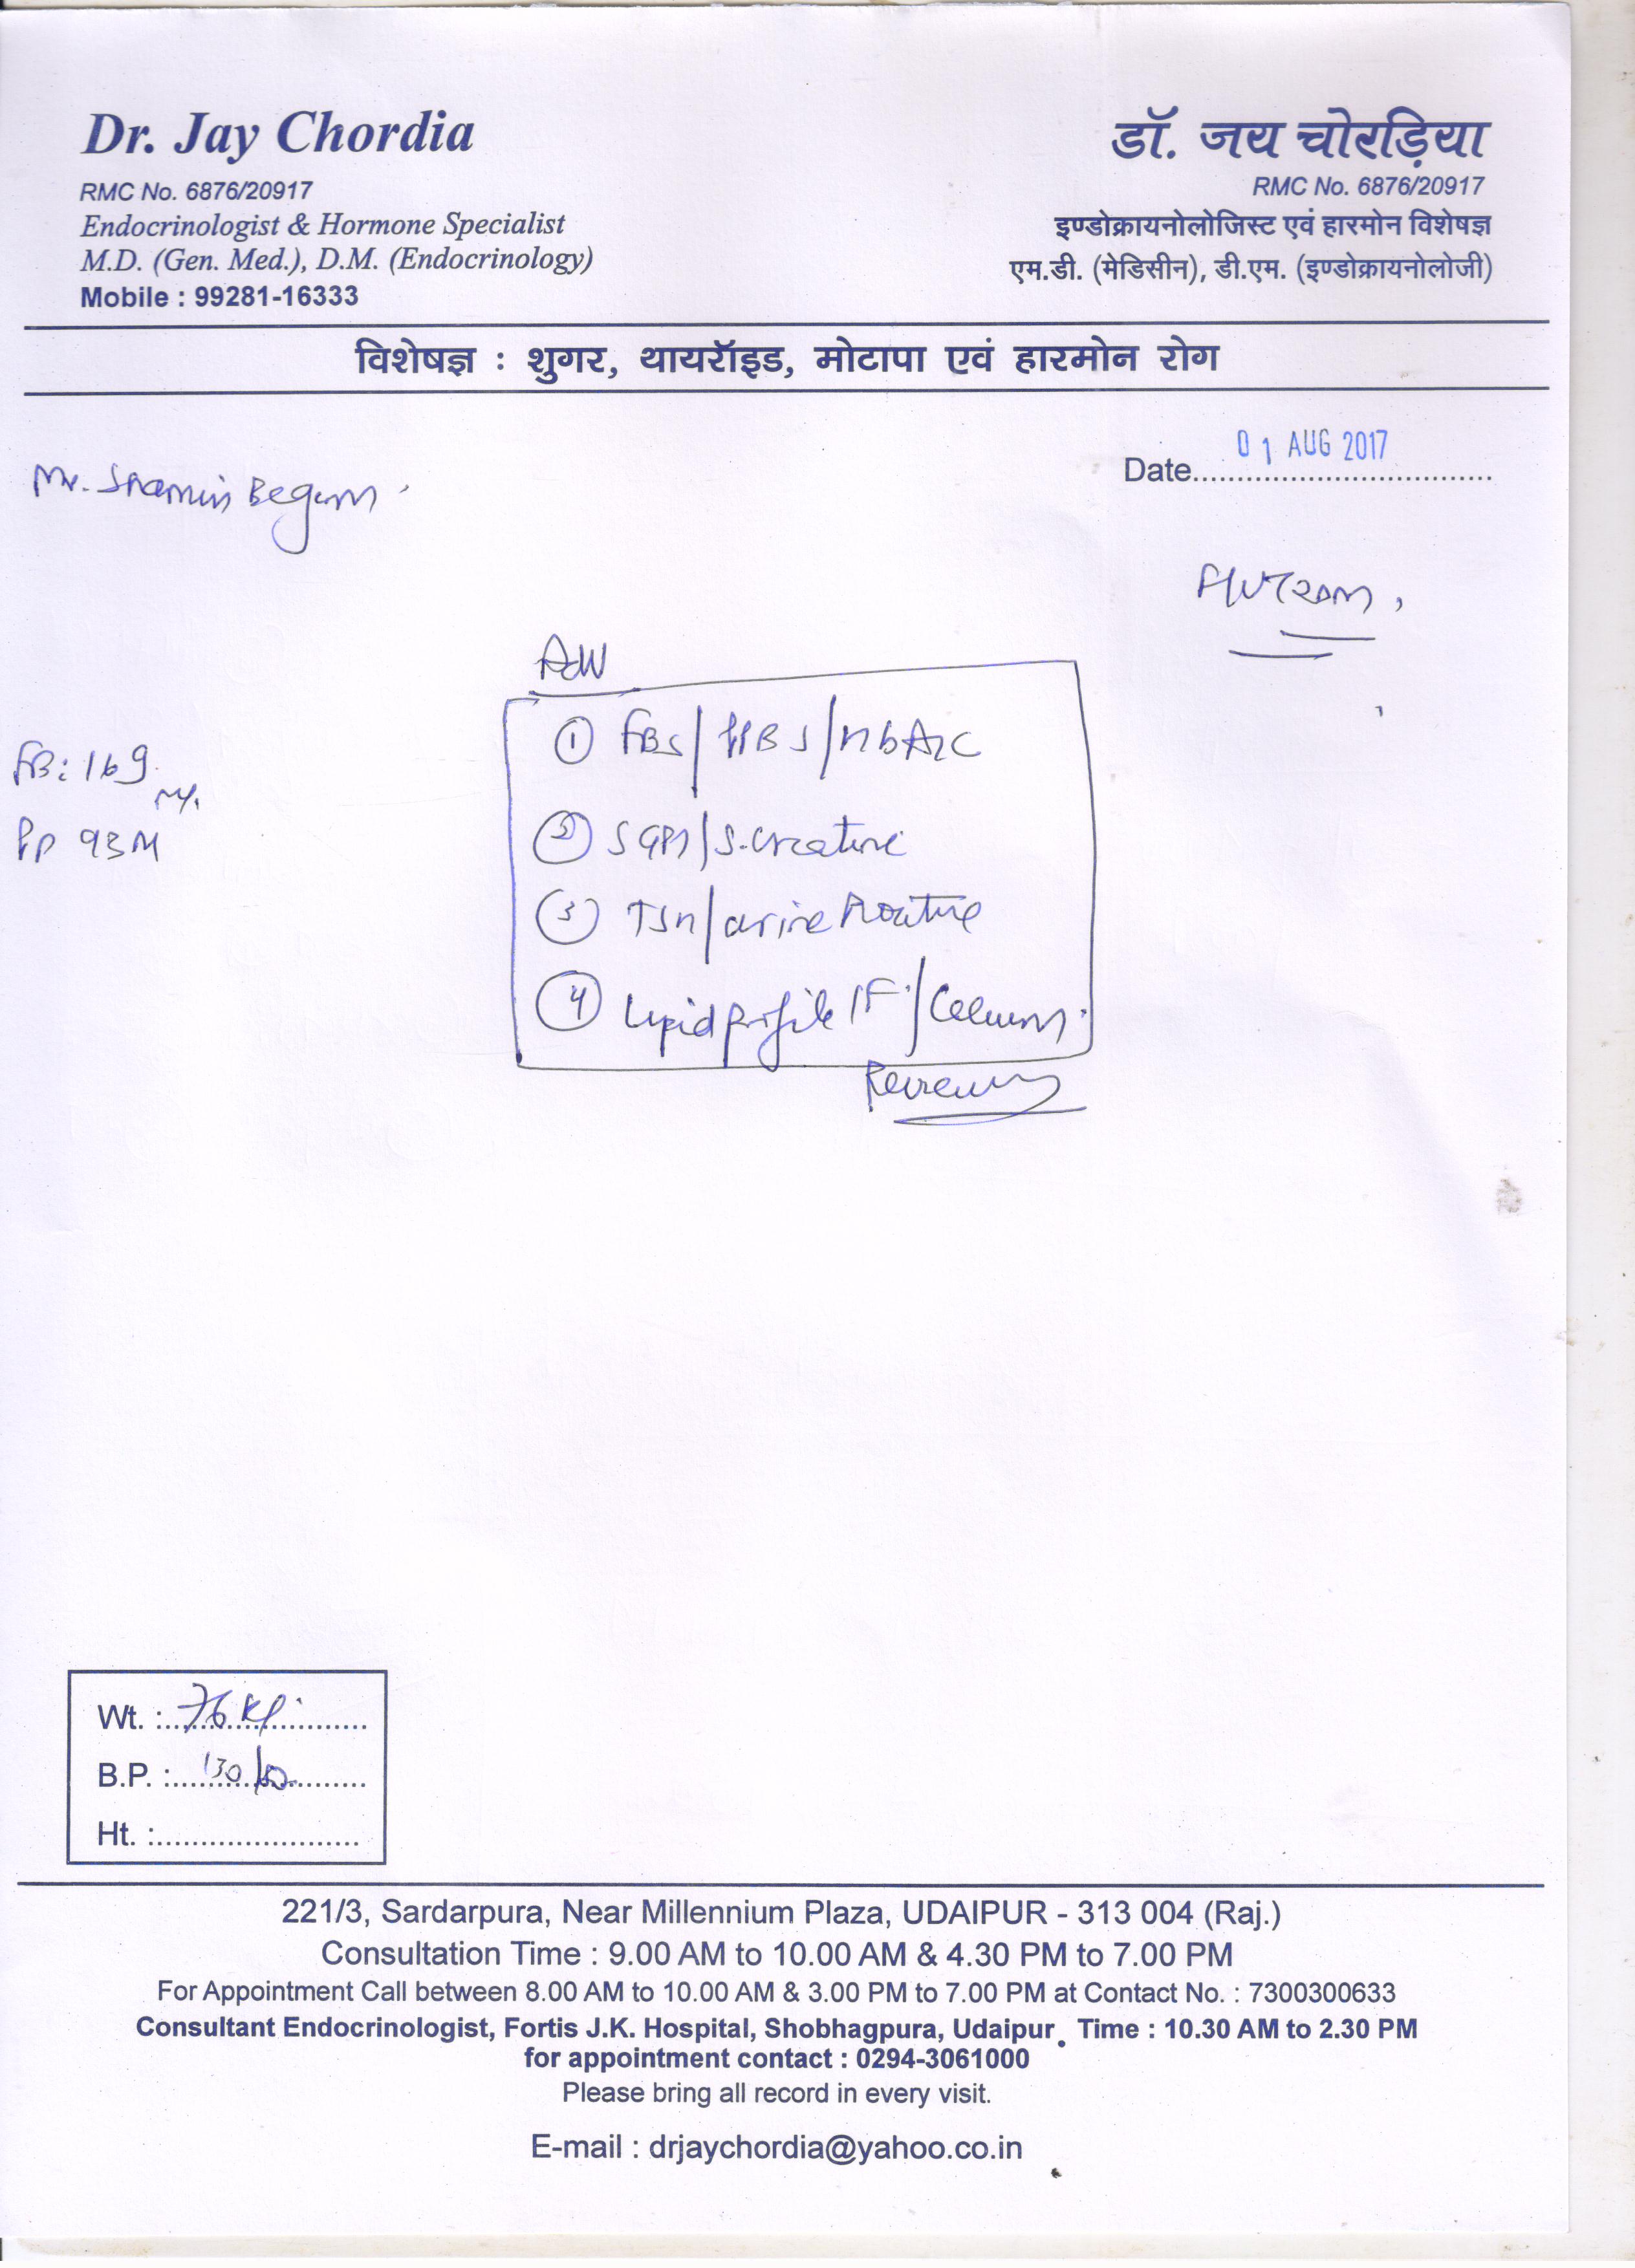 Dr. Jay Chordia
RMC No. 6876/20917
Endocrinologist & Hormone Specialist
M.D. (Gen. Med.), D.M. (Endocrinology)
Mobile : 99281-16333
डॉ. जय चोरड़िया
RMC No. 6876/20917
इण्डोक्रायनोलोजिस्ट एवं हारमोन विशेषज्ञ
एम.डी. (मेडिसीन), डी.एम. (इण्डोक्रायनोलोजी)
विशेषज्ञ : शुगर, थायरॉइड, मोटापा एवं हारमोन रोग
Date 01 AUG 2017
Begum
Adv
① FBS/PPBS/HbA1C
② SGPT/S.Creatine
③ TSH/urine Routine
④ Lipid profile (F)/Calcium
Review
FB: 169
PP
Wt. : 76 Kg
B.P. : 130/80
Ht. :
221/3, Sardarpura, Near Millennium Plaza, UDAIPUR - 313 004 (Raj.)
Consultation Time : 9.00 AM to 10.00 AM & 4.30 PM to 7.00 PM
For Appointment Call between 8.00 AM to 10.00 AM & 3.00 PM to 7.00 PM at Contact No. : 7300300633
Consultant Endocrinologist, Fortis J.K. Hospital, Shobhagpura, Udaipur. Time : 10.30 AM to 2.30 PM
for appointment contact : 0294-3061000
Please bring all record in every visit.
E-mail : drjaychordia@yahoo.co.in